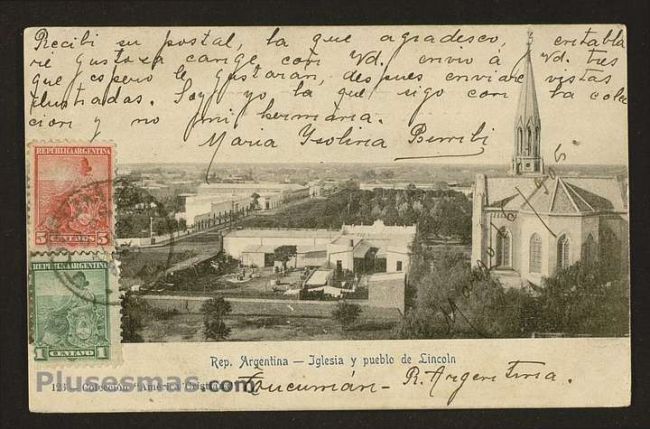 Recibi su postal, la que agradesco, entabla
ré gustosa cange con Vd. envio á Vd. tres
que espero le gustarán, despues enviaré vistas
ilustradas. Soy yo la que sigo con la colec
cion y no mi hermana.
Maria Ysolina
REPÚBLICA ARGENTINA
5 CENTAVOS 5
REPÚBLICA ARGENTINA
1 CENTAVO 1
Rep. Argentina — Iglesia y pueblo de Lincoln
Plusesmas.com
Tucumán - R. Argentina.